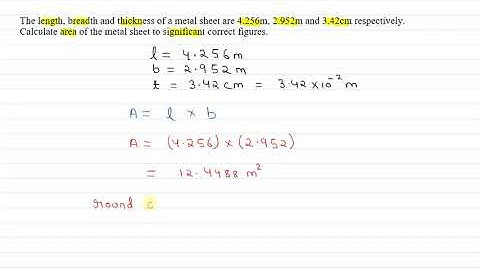 The length, breadth and thickness of a metal sheet are 4.256m, 2.952m and 3.42cm respectively.
Calculate area of the metal sheet to significant correct figures.
l = 4.256 m
b = 2.952 m
t = 3.42 cm = 3.42 × 10⁻² m
A = l × b
A = (4.256) × (2.952)
= 12.4488 m²
round